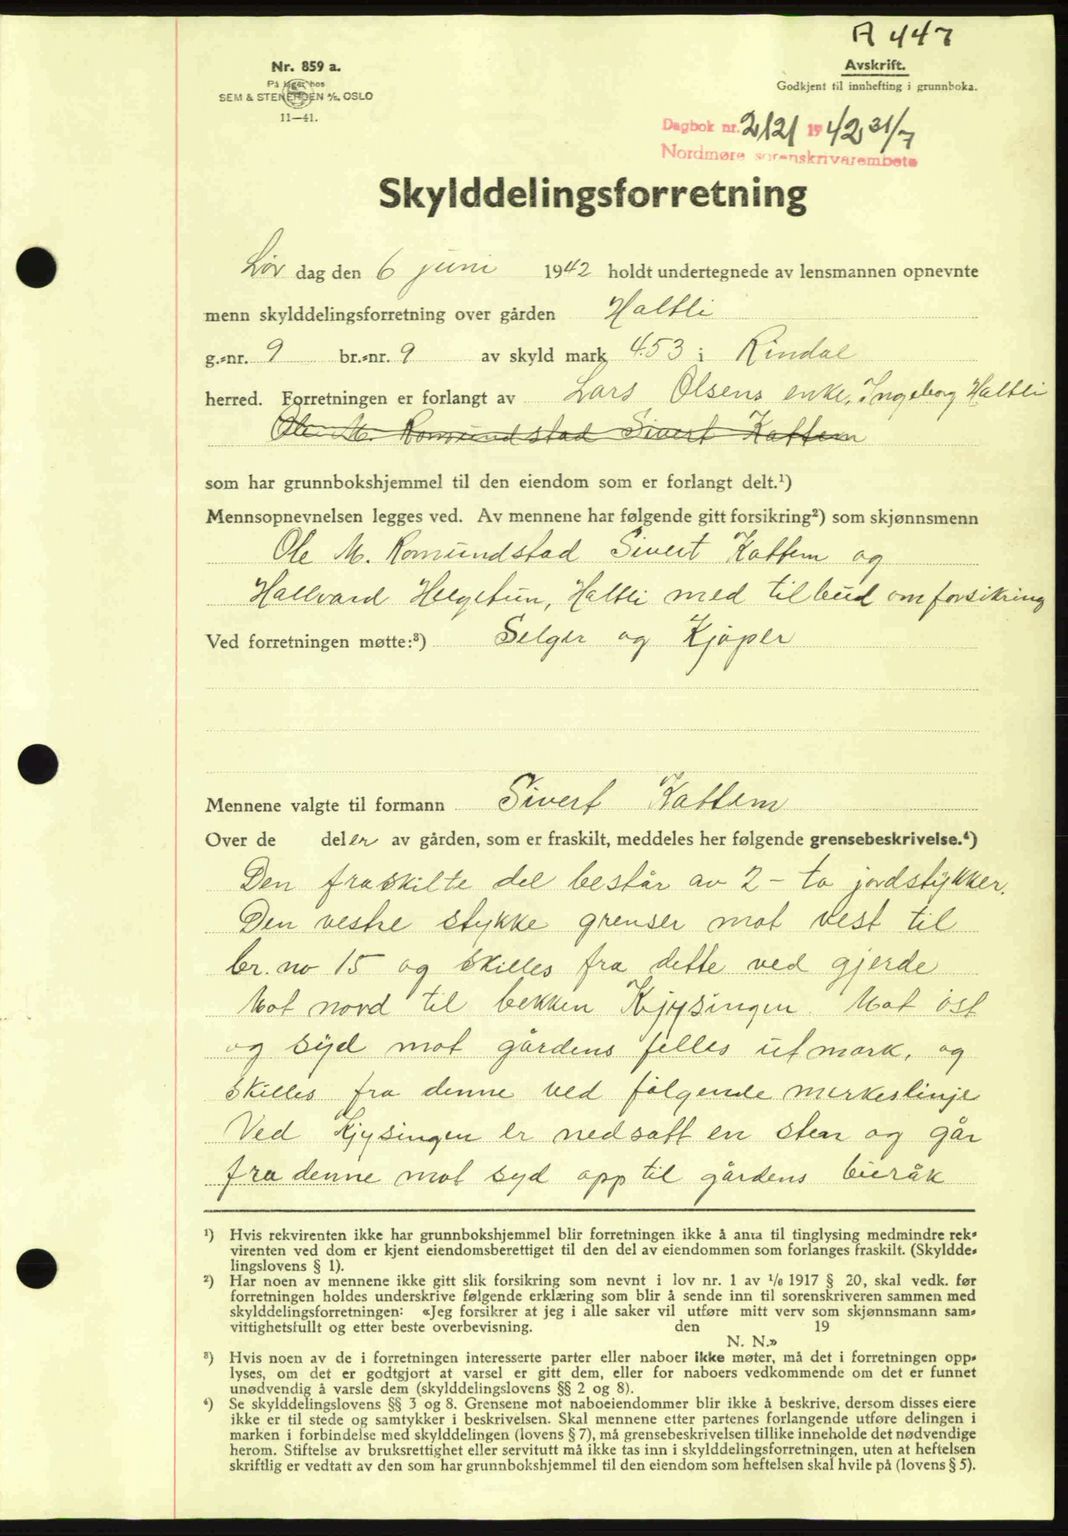 A 447
Nr. 859 a.
På lager hos
SEM & STENERSEN A/S, OSLO
11—41.
Avskrift.
Godkjent til innhefting i grunnboka.
Dagbok nr. 2121 1942 31/7
Nordmøre sorenskrivarembete
Skylddelingsforretning
Lør dag den 6 juni 1942 holdt undertegnede av lensmannen opnevnte
menn skylddelingsforretning over gården Haltli
g.-nr. 9 br.-nr. 9 av skyld mark 4.53 i Rindal
herred. Forretningen er forlangt av Lars Olsens enke, Ingeborg Haltli
Ole M. Romundstad Sivert Kattem
som har grunnbokshjemmel til den eiendom som er forlangt delt.¹)
Mennsopnevnelsen legges ved. Av mennene har følgende gitt forsikring²) som skjønnsmenn
Ole M. Romundstad Sivert Kattem og
Hallvard Helgetun, Haltli med tilbud om forsikring
Ved forretningen møtte:³) Selger og Kjøper
Mennene valgte til formann Sivert Kattem
Over de deler av gården, som er fraskilt, meddeles her følgende grensebeskrivelse.⁴)
Den fraskilte del består av 2 - to jordstykker.
Den vestre stykke grenser mot vest til
br. no 15 og skilles fra dette ved gjerde
Mot nord til bekken Kjysingen. Mot øst
og syd mot gårdens felles utmark, og
skilles fra denne ved følgende merkeslinje
Ved Kjysingen er nedsatt en sten og går
fra denne mot syd opp til gårdens bieråk
¹) Hvis rekvirenten ikke har grunnbokshjemmel blir forretningen ikke å anta til tinglysing medmindre rek-
virenten ved dom er kjent eiendomsberettiget til den del av eiendommen som forlanges fraskilt. (Skyldde-
lingslovens § 1).
²) Har noen av mennene ikke gitt slik forsikring som nevnt i lov nr. 1 av 1/6 1917 § 20, skal vedk. før
forretningen holdes underskrive følgende erklæring som blir å sende inn til sorenskriveren sammen med
skylddelingsforretningen: «Jeg forsikrer at jeg i alle saker vil utføre mitt verv som skjønnsmann sam-
vittighetsfullt og etter beste overbevisning. den 19
N. N.»
³) Hvis noen av de i forretningen interesserte parter eller naboer ikke møter, må det i forretningen opp-
lyses, om det er godtgjort at varsel er gitt dem, eller for naboers vedkommende om det er funnet
unødvendig å varsle dem (skylddelingslovens §§ 2 og 8).
⁴) Se skylddelingslovens §§ 3 og 8. Grensene mot naboeiendommer blir ikke å beskrive, dersom disses eiere
ikke er til stede og samtykker i beskrivelsen. Skal mennene etter partenes forlangende utføre delingen i
marken i forbindelse med skylddelingen (lovens § 7), må grensebeskrivelsen tillike inneholde det nødvendige
herom. Stiftelse av bruksrettighet eller servitutt må ikke tas inn i skylddelingsforretningen, uten at heftelsen
skriftlig er vedtatt av den som har grunnbokshjemmel til den eiendom som heftelsen skal hvile på (lovens § 5).